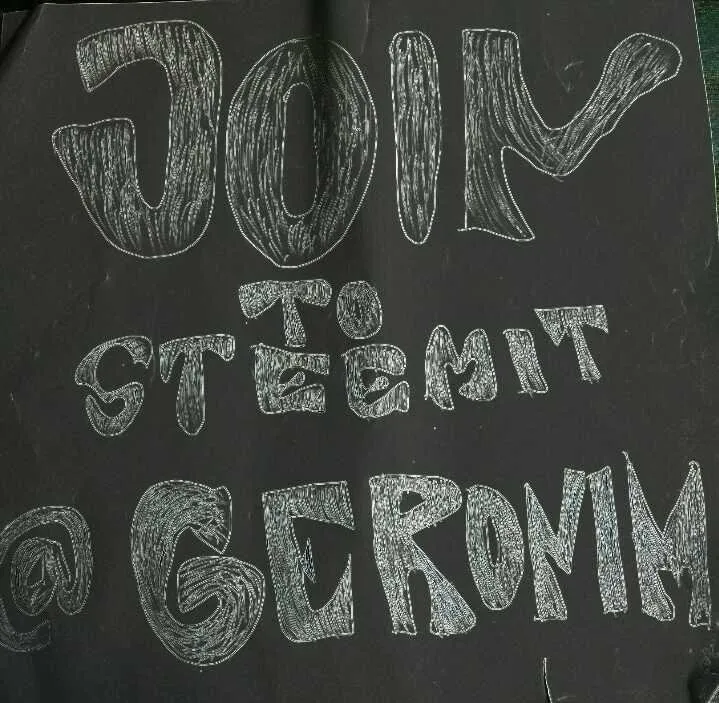 JOIN
TO
STEEMIT
@GERONIM